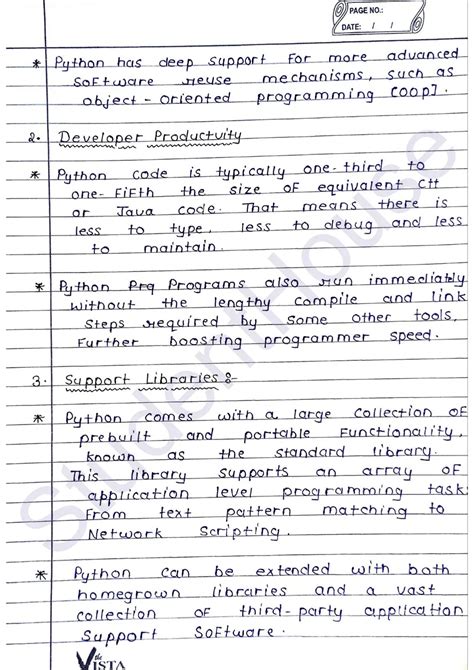 PAGE NO.:
DATE: / /
* Python has deep support for more advanced
software reuse mechanisms, such as
object-oriented programming [OOP].
2. Developer Productvity
* Python code is typically one-third to
one-fifth the size of equivalent C++
or Java code. That means there is
less to type, less to debug and less
to maintain.
* Python Prq Programs also run immediately
without the lengthy compile and link
steps required by some other tools,
further boosting programmer speed.
3. Support Libraries :-
* Python comes with a large collection of
prebuilt and portable functionality,
known as the standard library.
This library supports an array of
application level programming task
from text pattern matching to
Network Scripting.
* Python can be extended with both
homegrown libraries and a vast
collection of third-party application
Support Software.
the VISTA
StudentHouse